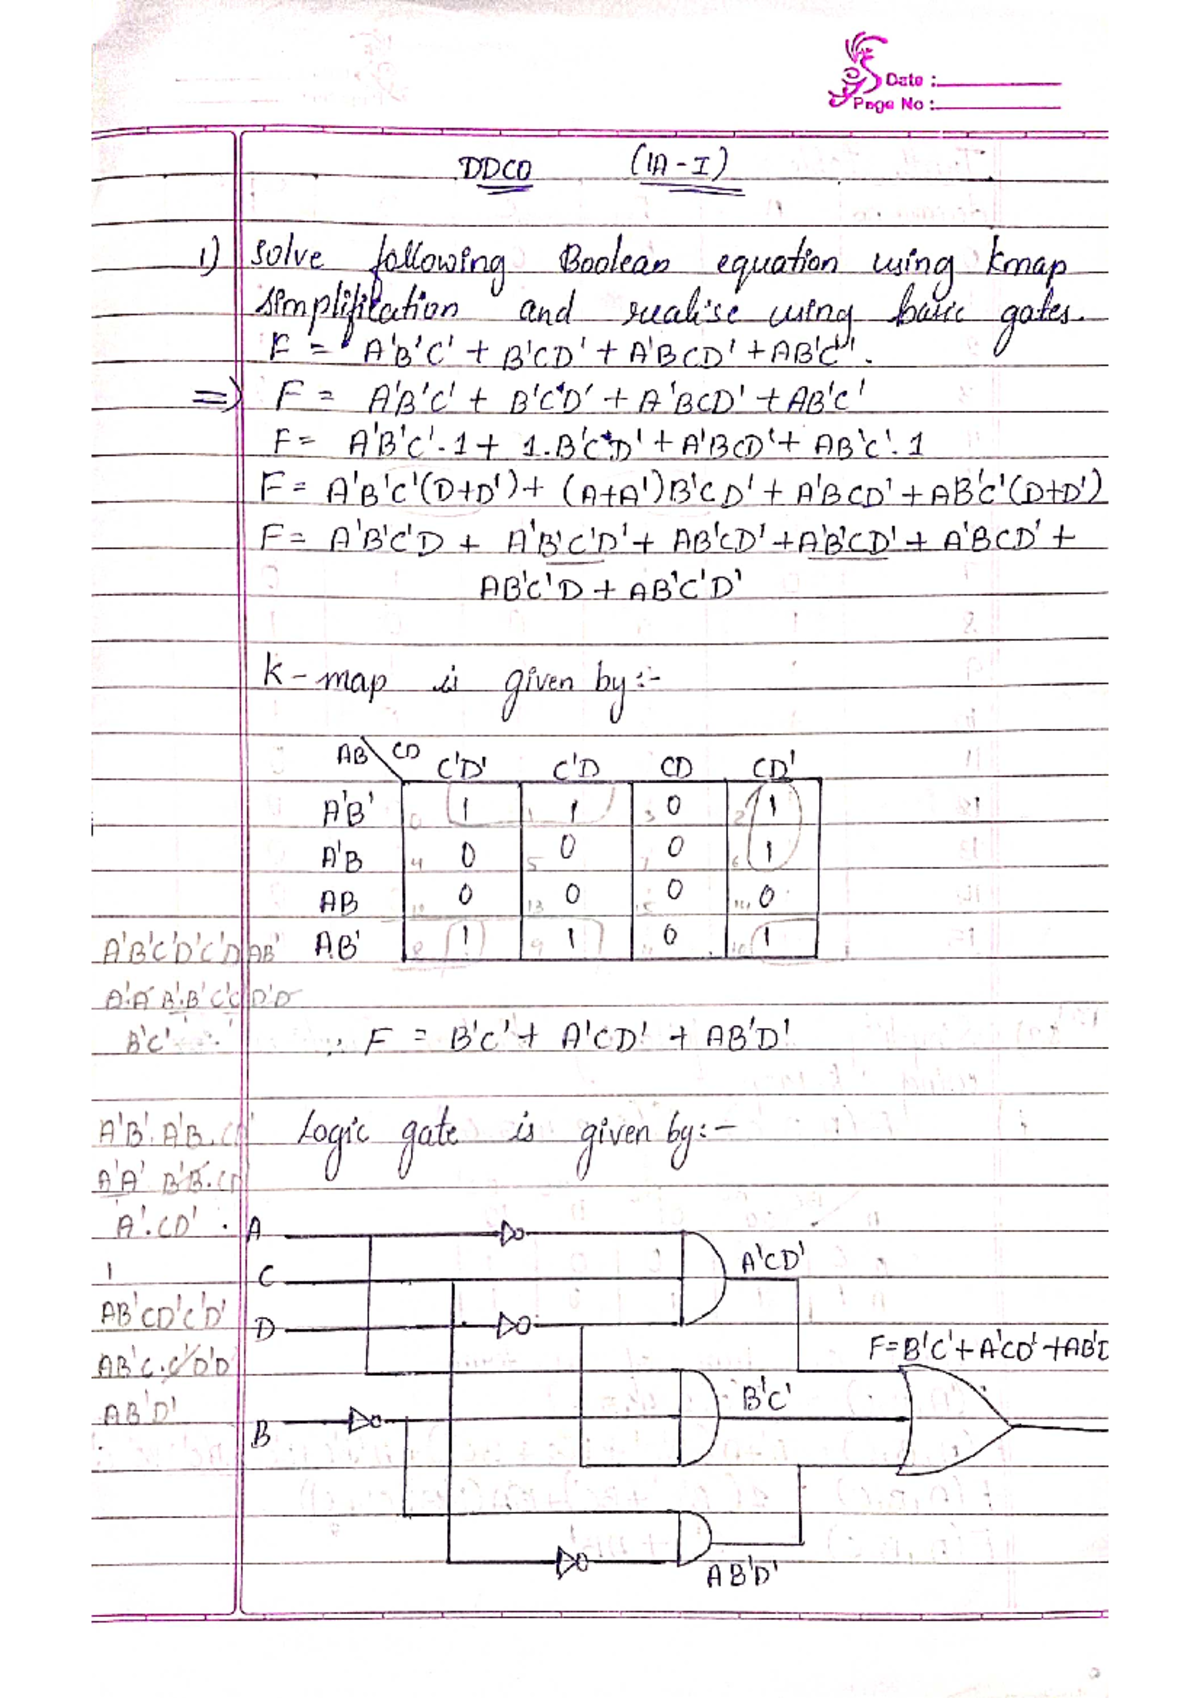 Date :
Page No :
DDCO (IA-I)
1) solve following Boolean equation using kmap
simplification and realise using basic gates.
F = A'B'C' + B'CD' + A'BCD' + AB'C'.
=> F = A'B'C' + B'C'D' + A'BCD' + AB'C'
F = A'B'C'.1 + 1.B'C'D' + A'BCD' + AB'C'.1
F = A'B'C'(D+D') + (A+A')B'CD' + A'BCD' + AB'C'(D+D')
F = A'B'C'D + A'B'C'D' + AB'CD' + A'B'CD' + A'BCD' +
AB'C'D + AB'C'D'
K-map is given by:-
AB CD C'D' C'D CD CD'
A'B' 0 1 1 1 3 0 2 1
A'B 4 0 5 0 7 0 6 1
AB 12 0 13 0 15 0 14 0
AB' 8 1 9 1 0 10 1
A'B'C'D'C'D AB'
A'.A B'.B' C'C' D'D
B'C'
∴ F = B'C' + A'CD' + AB'D'
A'B'.A'B.C
Logic gate is given by:-
A'A' B'B.C
A'.CD'.
A
C
D
B
1
AB'CD'C'D'
AB'C.C'D'D'
AB'D'
A'CD'
F=B'C'+A'CD'+AB'D
B'C'
AB'D'